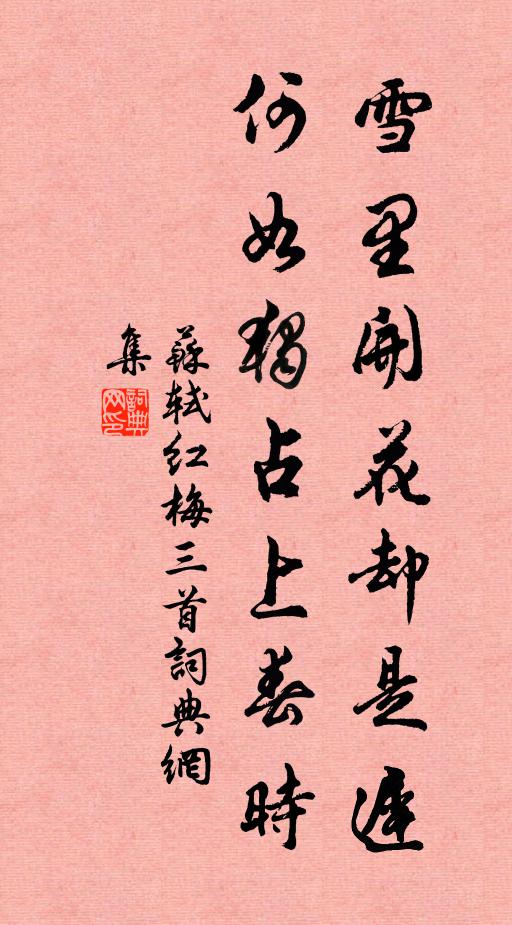 雪里開花却是遲
何如獨占上春時
蘇軾紅梅三首詞典網
集
詞典网印